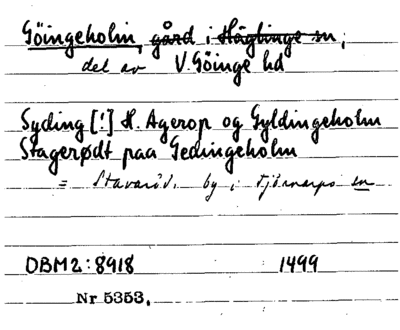 Göingeholm, gård i Häglinge sn,
del av V. Göinge hd
Syding [!] H. Agerop og Gyldingeholm
Stagerødt paa Gedingeholm
= Stavaröd, by i Tjörnarps sn
DBM2:8918 1499
Nr 5353.